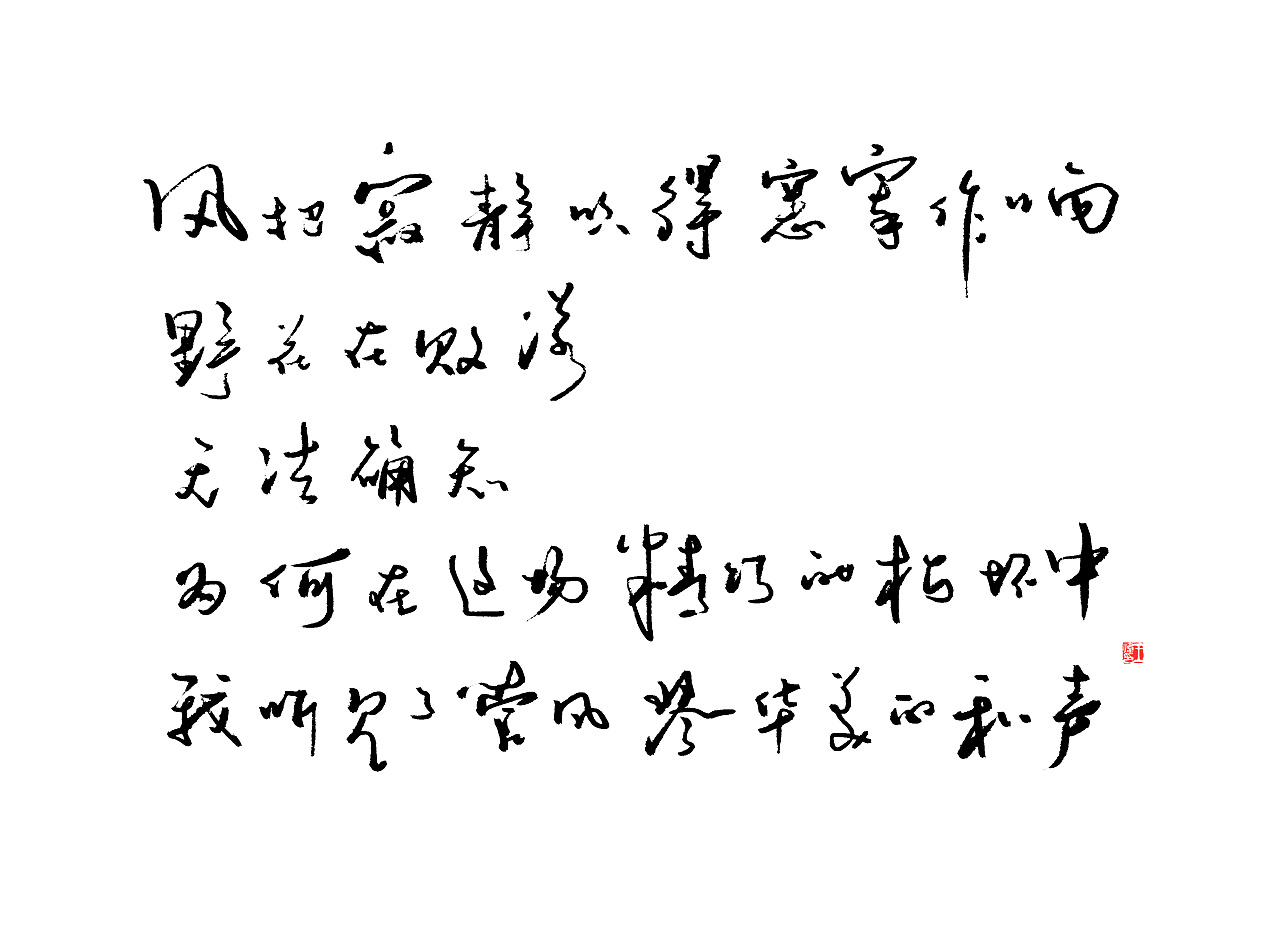 风把寂静吹得窸窣作响
野花在败落
无法确知
为何在这场精巧的枯坏中
我听见了管风琴华美的和声